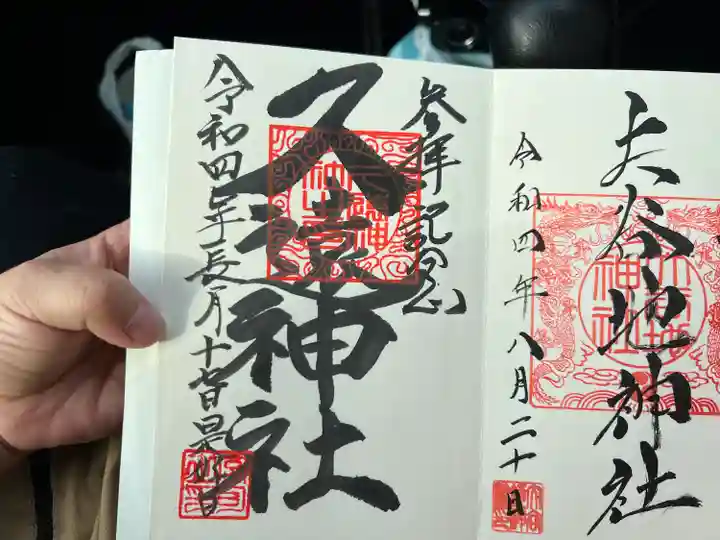 大谷地神社
令和四年八月二十日
参拝記念
久遠神社
令和四年長月十日是好日